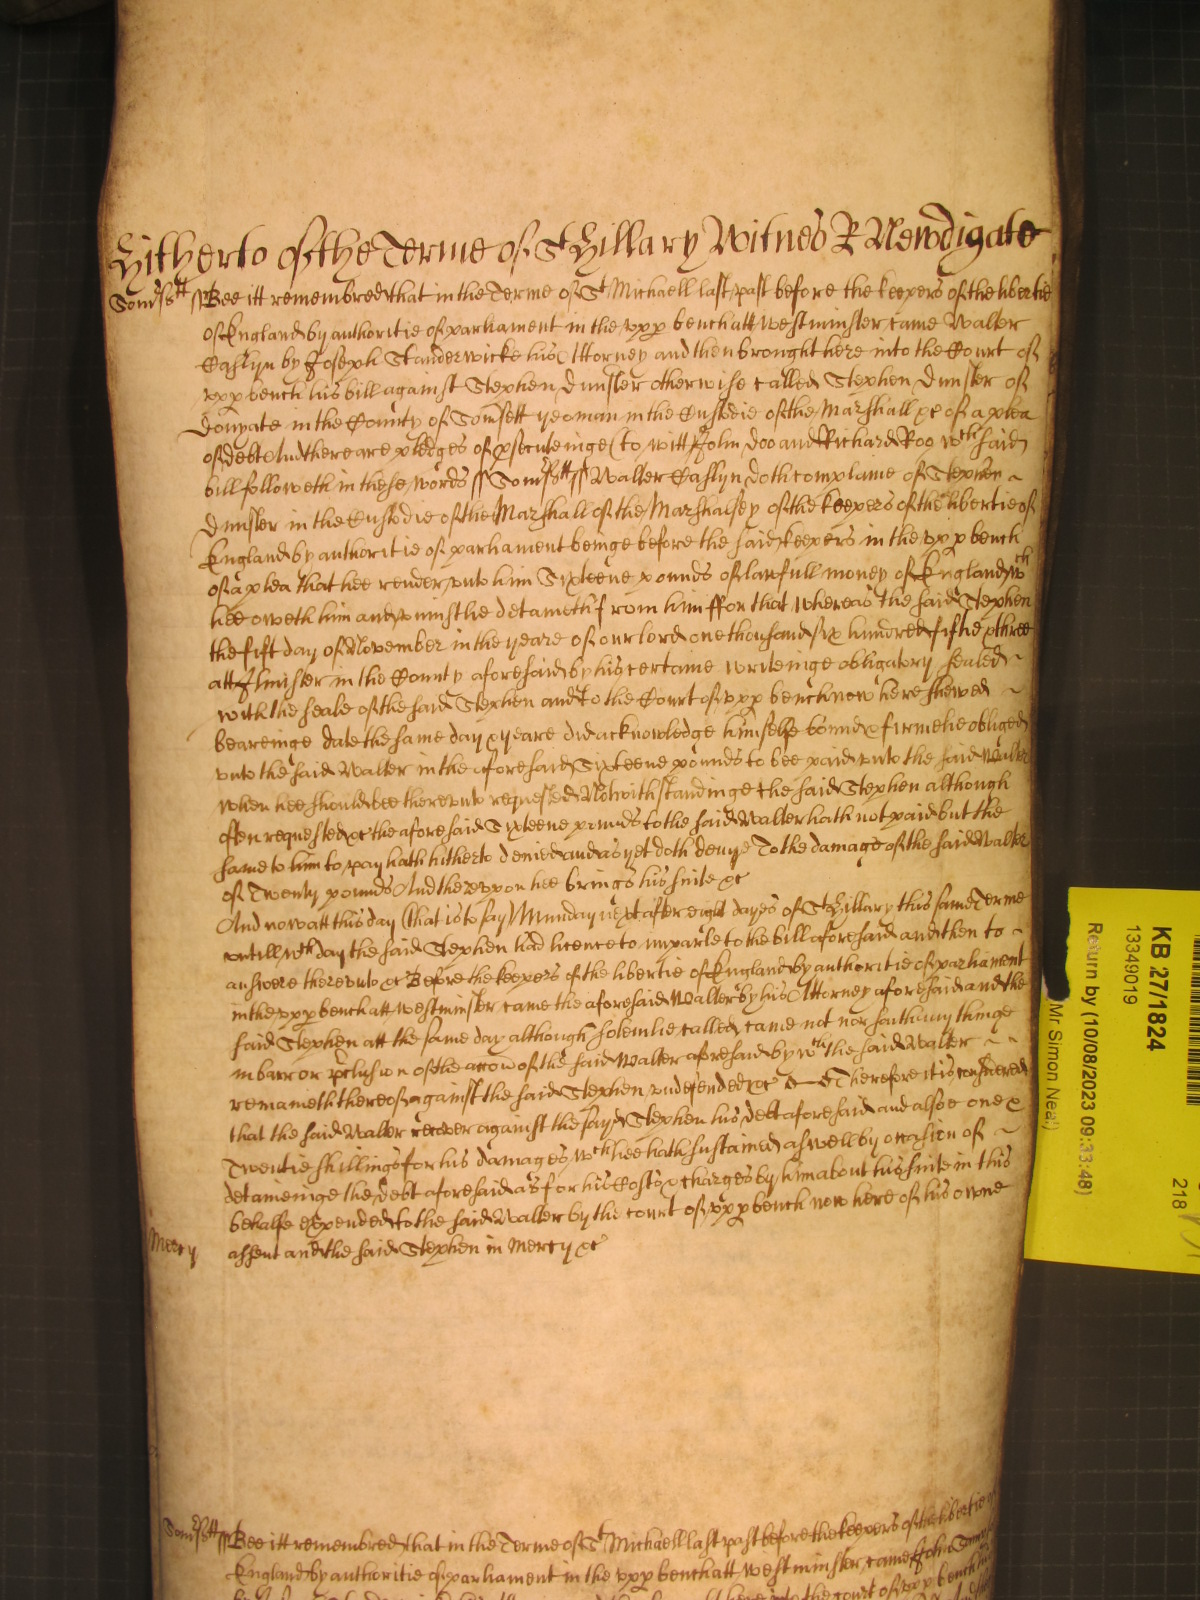 Hitherto of the Terme of St Hillary Witnes R Newdigate
Somsett ss Bee itt remembred that in the Terme of St Michaell last past before the keepers of the libertie
of England by authoritie of parliament in the upp bench att Westminster came Walter
by Joseph Standerwicke his Attorney and then brought here into the Court of
upp bench his bill against Stephen Dunster otherwise called Stephen Dunster of
Donyate in the County of Somsett yeoman in the Custodie of the Marshall &c of a plea
of debt And there are pledges of psecuteinge (to witt) John Doo and Richard Roo wch said
bill followeth in these words ss Somsett ss Walter doth complaine of Stephen
Dunster in the Custodie of the Marshall of the Marshalsey of the keepers of the libertie of
England by authoritie of parliament beinge before the said keepers in the upp bench
of a plea that hee render unto him Sixteene pounds of lawfull money of England wch
hee oweth him and uniustlie detaineth from him ffor that whereas the said Stephen
the fift day of November in the yeare of our lord one thousand six hundred fiftie & three
att Ilminster in the County aforesaid by his certaine writeinge obligatory sealed
with the seale of the said Stephen and to the Court of upp bench now here shewed
beareinge date the same day & yeare did acknowledge himselfe bound & firmelie obliged
unto the said Walter in the aforesaid Sixteene pounds to bee paid unto the said Walter
when hee should bee thereunto requested Notwithstandinge the said Stephen although
often requested &c the aforesaid Sixteene pounds to the said Walter hath not paid but the
same to him to pay hath hitherto denied and as yet doth denye To the damage of the said Walter
of Twenty pounds And thereupon hee brings his suite &c
And now att this day (that is to say) Munday next after eight dayes of St Hillary this same Terme
untill wch day the said Stephen had licence to imparle to the bill aforesaid and then to
answere thereunto &c Before the keepers of the libertie of England by authoritie of parliament
in the upp bench att Westminster came the aforesaid Walter by his Attorney aforesaid and the
said Stephen att the same day although solemlie called came not nor saith any thinge
in barr or pclusion of the accon of the said Walter aforesaid by wch the said Walter
remaineth thereof against the said Stephen undefended &c Therefore it is considered
that the said Walter recover against the sayd Stephen his debt aforesaid and alsoe one &
Twentie shillings for his damages wch hee hath sustained aswell by occasion of
detaineinge the debt aforesaid as for his Costs & charges by him about his suite in this
behalfe expended to the said Walter by the court of upp bench now here of his owne
Mercy assent and the said Stephen in Mercy &c
Somsett ss Bee itt remembred that in the Terme of St Michaell last past before the keepers of the libertie of
England by authoritie of parliament in the upp bench att Westminster came John
the court of upp bench
KB 27/1824
13349019
Return by (10/08/2023 09:33:48)
Mr Simon Neal)
218